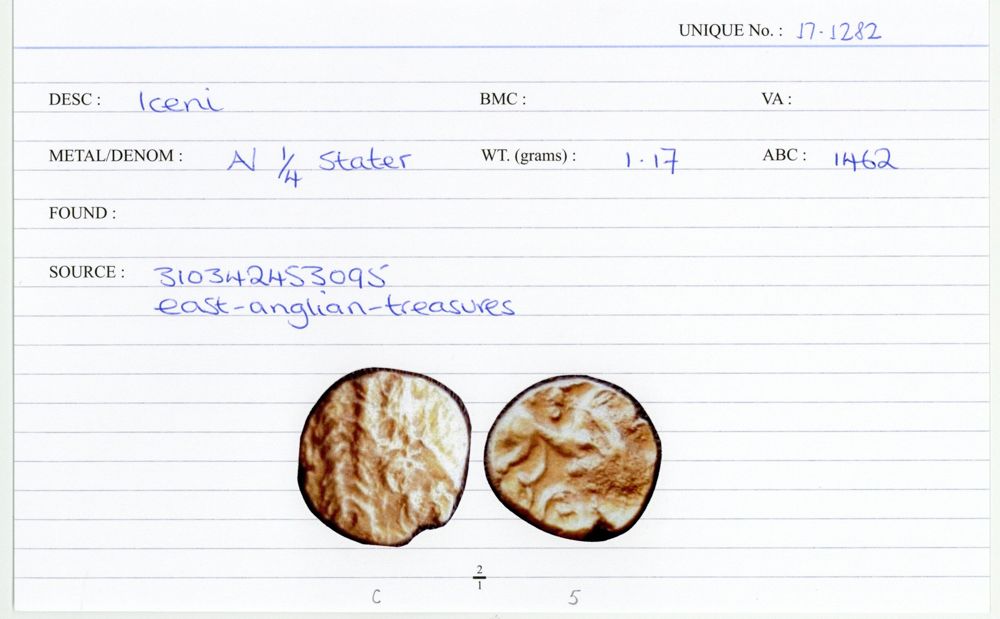 UNIQUE No. : 17-1282
DESC : Iceni BMC : VA :
METAL/DENOM : AV 1/4 Stater WT. (grams) : 1.17 ABC : 1462
FOUND :
SOURCE : 310342453095
east-anglian-treasures
2/1
C 5